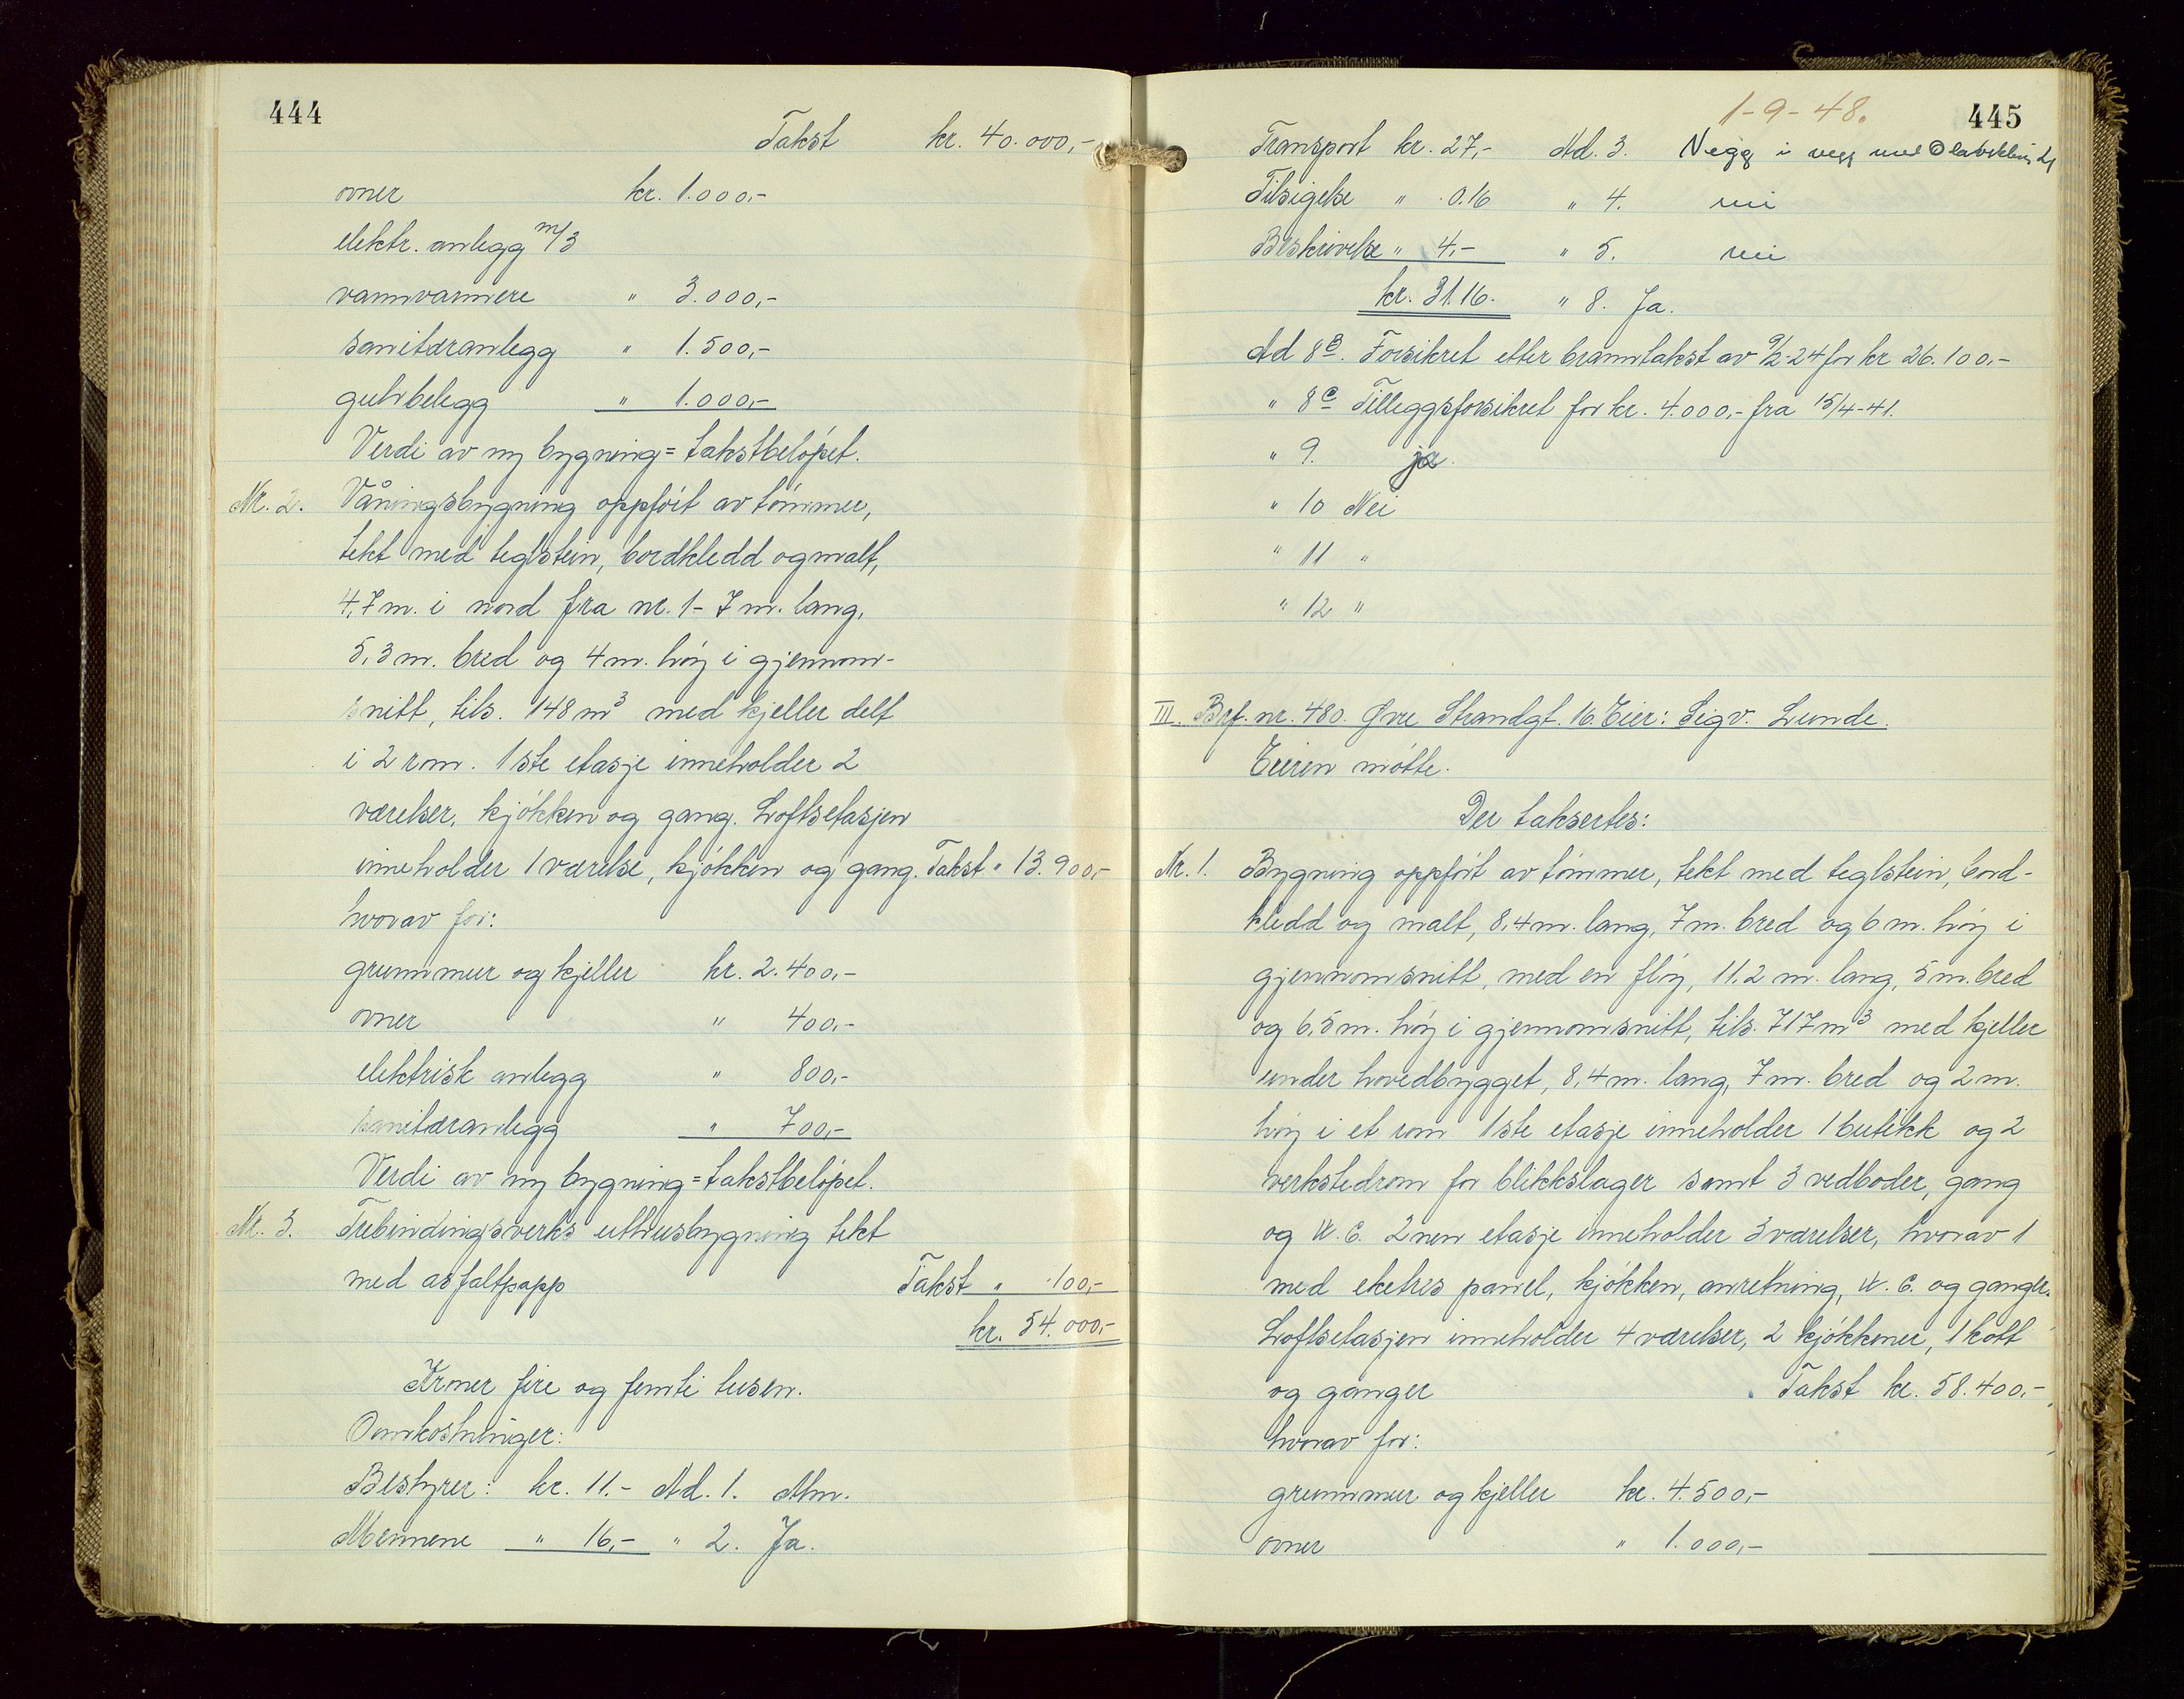 444
Takst kr. 40.000,-
ovner kr. 1.000,-
elektr. anlegg m/3
vannvarmere " 3.000,-
sanitæranlegg " 1.500,-
gulvbelegg " 1.000,-
Verdi av ny bygning = takstbeløpet.
Nr. 2. Våningsbygning oppført av tømmer,
tekt med teglstein, bordkledd og malt,
4,7 m. i nord fra nr. 1 - 7 m. lang,
5,3 m. bred og 4 m. høy i gjennom-
snitt, tils. 148 m³ med kjeller delt
i 2 rom. 1ste etasje inneholder 2
værelser, kjøkken og gang. Loftsetasjen
inneholder 1 værelse, kjøkken og gang. Takst " 13.900,-
hvorav for:
grunnmur og kjeller kr. 2.400,-
ovner " 400,-
elektrisk anlegg " 800,-
sanitæranlegg " 700,-
Verdi av ny bygning = takstbeløpet.
Nr. 3. Trebindingsverks uthusbygning tekt
med asfaltpapp Takst " 100,-
kr. 54.000,-
Kroner fire og femti tusen.
Omkostninger:
Bestyrer: kr. 11.- Ad. 1. Alm.
Mennene " 16,- " 2. Ja.
1-9-48. 445
Transport kr. 27,- Ad. 3. Negg i vegg med
Tilsigelse " 0.16 " 4. nei
Beskrivelse " 4,- " 5. nei
kr. 31.16. " 8. Ja.
Ad 8B. Forsikret etter branntakst av 9/2-24 for kr 26.100,-
" 8C Tilleggsforsikret for kr. 4.000,- fra 15/4-41.
" 9. ja.
" 10 Nei
" 11 "
" 12 "
III. Brf. nr. 480. Øvre Strandgt. 16. Eier: Sigv. Lunde.
Eieren møtte.
Der taksertes:
Nr. 1. Bygning oppført av tømmer, tekt med teglstein, bord-
kledd og malt, 8,4 m. lang, 7 m. bred og 6 m. høy i
gjennomsnitt, med en fløy, 11.2 m. lang, 5 m. bred
og 6,5 m. høy i gjennomsnitt, tils. 717 m³ med kjeller
under hovedbygget, 8,4 m. lang, 7 m. bred og 2 m.
høy i et rom 1ste etasje inneholder 1 butikk og 2
verkstedrom for blikkslager samt 3 vedboder, gang
og W.C. 2nen etasje inneholder 3 værelser, hvorav 1
med eketres panel, kjøkken, anretning, W.C. og ganger.
Loftsetasjen inneholder 4 værelser, 2 kjøkkener, 1 kott
og ganger Takst kr. 58.400,-
hvorav for:
grunnmur og kjeller kr. 4.500,-
ovner " 1.000,-